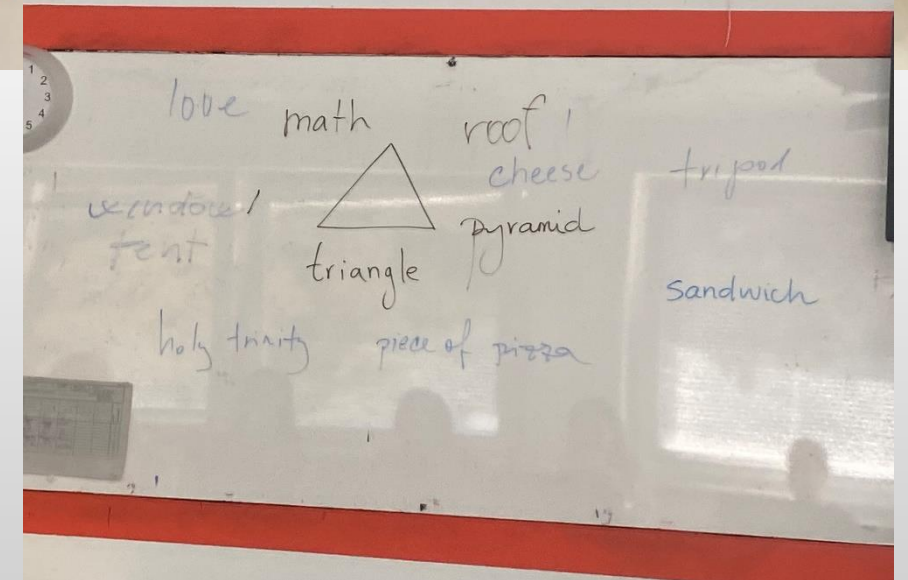 1
2
3
4
5
love
math
roof
cheese
tripod
window
tent
pyramid
triangle
sandwich
holy trinity
piece of pizza